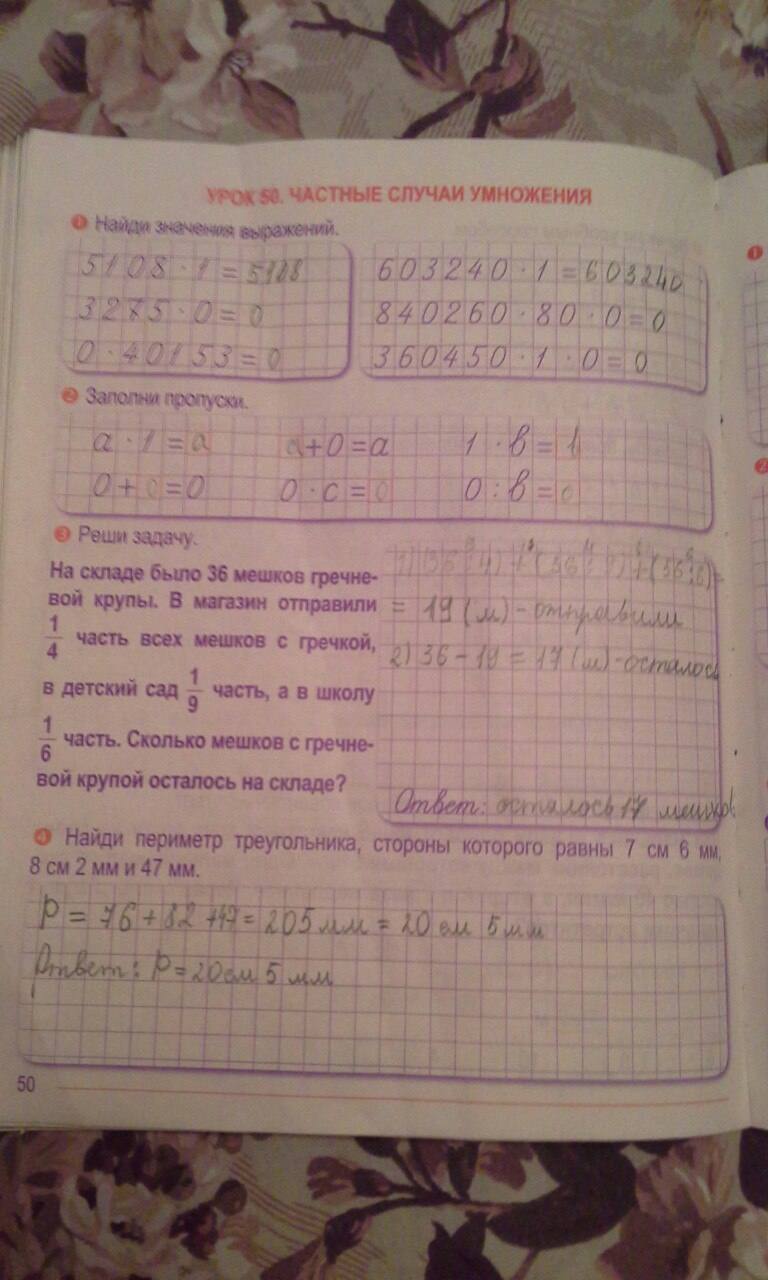 УРОК 50. ЧАСТНЫЕ СЛУЧАИ УМНОЖЕНИЯ
1 Найди значения выражений.
5108 · 1 = 5108
3275 · 0 = 0
0 · 40153 = 0
603240 · 1 = 603240
840260 · 80 · 0 = 0
360450 · 1 · 0 = 0
2 Заполни пропуски.
a · 1 = a a + 0 = a 1 · b = b
0 + 0 = 0 0 · c = 0 0 : b = 0
3 Реши задачу.
На складе было 36 мешков гречне-
вой крупы. В магазин отправили
1/4 часть всех мешков с гречкой,
в детский сад 1/9 часть, а в школу
1/6 часть. Сколько мешков с гречне-
вой крупой осталось на складе?
1) (36 : 4) + (36 : 9) + (36 : 6) =
= 19 (м) - отправили
2) 36 - 19 = 17 (м) - осталось
Ответ: осталось 17 мешков
4 Найди периметр треугольника, стороны которого равны 7 см 6 мм,
8 см 2 мм и 47 мм.
P = 76 + 82 + 47 = 205 мм = 20 см 5 мм
Ответ: P = 20 см 5 мм
50